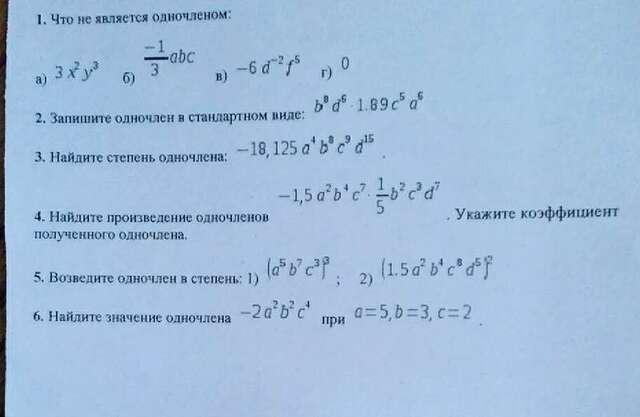 1. Что не является одночленом:
а) 3x²y³ б) \frac{-1}{3}abc в) −6d⁻²f⁵ г) 0
2. Запишите одночлен в стандартном виде: b⁸d⁶·1.89c⁵a⁶
3. Найдите степень одночлена: −18,125a⁴b⁸c⁹d¹⁵ .
4. Найдите произведение одночленов −1,5a²b⁴c⁷·\frac{1}{5}b²c³d⁷ . Укажите коэффициент
полученного одночлена.
5. Возведите одночлен в степень: 1) (a⁵b⁷c³)³ ; 2) (1.5a²b⁴c⁸d⁵)²
6. Найдите значение одночлена −2a²b²c⁴ при a=5,b=3,c=2 .